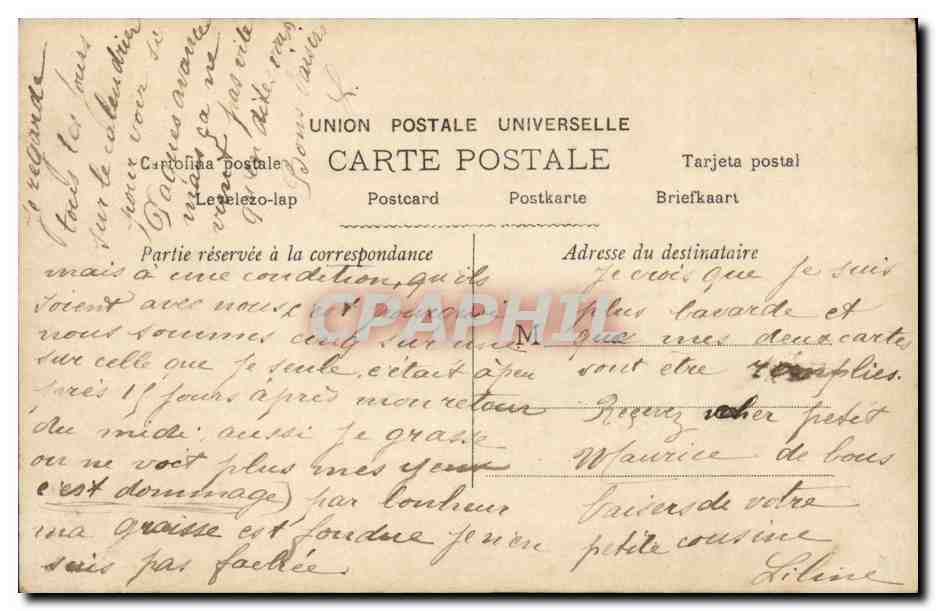 Je regarde
tous les jours
sur le calendrier
pour voir si
Pâques avance
mais ça ne
vient pas vite
dites vous
Bons baisers
L.
UNION POSTALE UNIVERSELLE
Cartolina postale CARTE POSTALE Tarjeta postal
Levelezo-lap Postcard Postkarte Briefkaart
Partie réservée à la correspondance
mais à une condition, qu'ils
soient avec nous, est pourquoi
nous sommes cinq sur une
sur celle que je seule. c'était à peu
près 15 jours après mon retour
du midi. aussi je grasse
on ne voit plus mes yeux
(c'est dommage) par bonheur
ma graisse est fondue je n'en
suis pas fachée.
Adresse du destinataire
Je crois que je suis
plus bavarde et
M que mes deux cartes
vont être remplies.
Recevez cher petit
Maurice de bons
baisers de votre
petite cousine
Liline
CPAPHIL